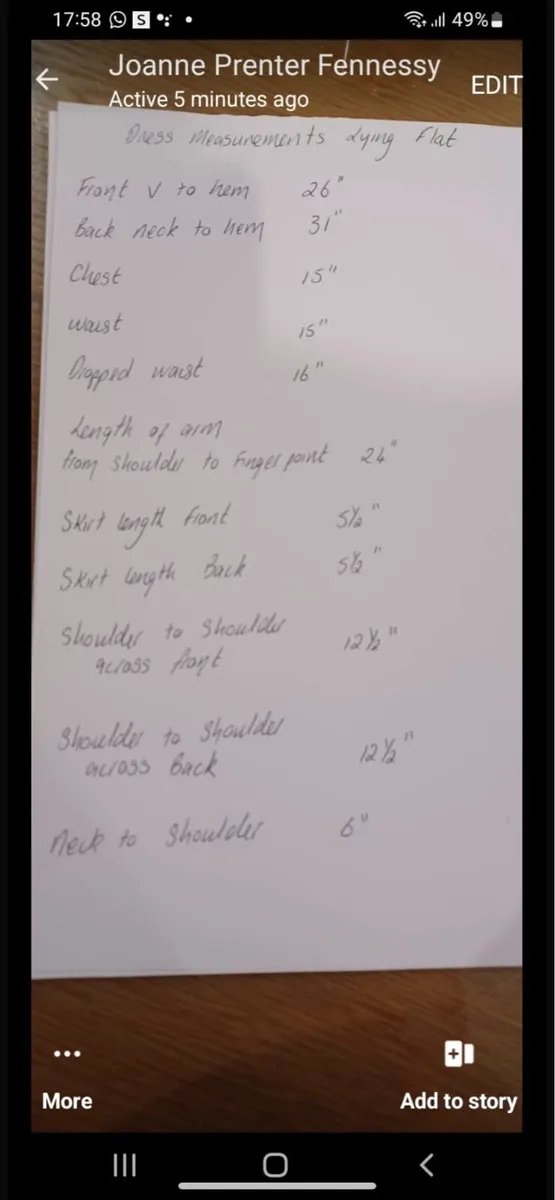 17:58 S 49%
Joanne Prenter Fennessy
EDIT
Active 5 minutes ago
Dress Measurements Lying Flat
Front V to hem 26"
Back neck to hem 31"
Chest 15"
waist 15"
Dropped waist 16"
Length of arm
from Shoulder to Finger point 24"
Skirt length front 5½"
Skirt length Back 5½"
Shoulder to Shoulder
across front 12½"
Shoulder to Shoulder
across Back 12½"
Neck to Shoulder 6"
More
Add to story